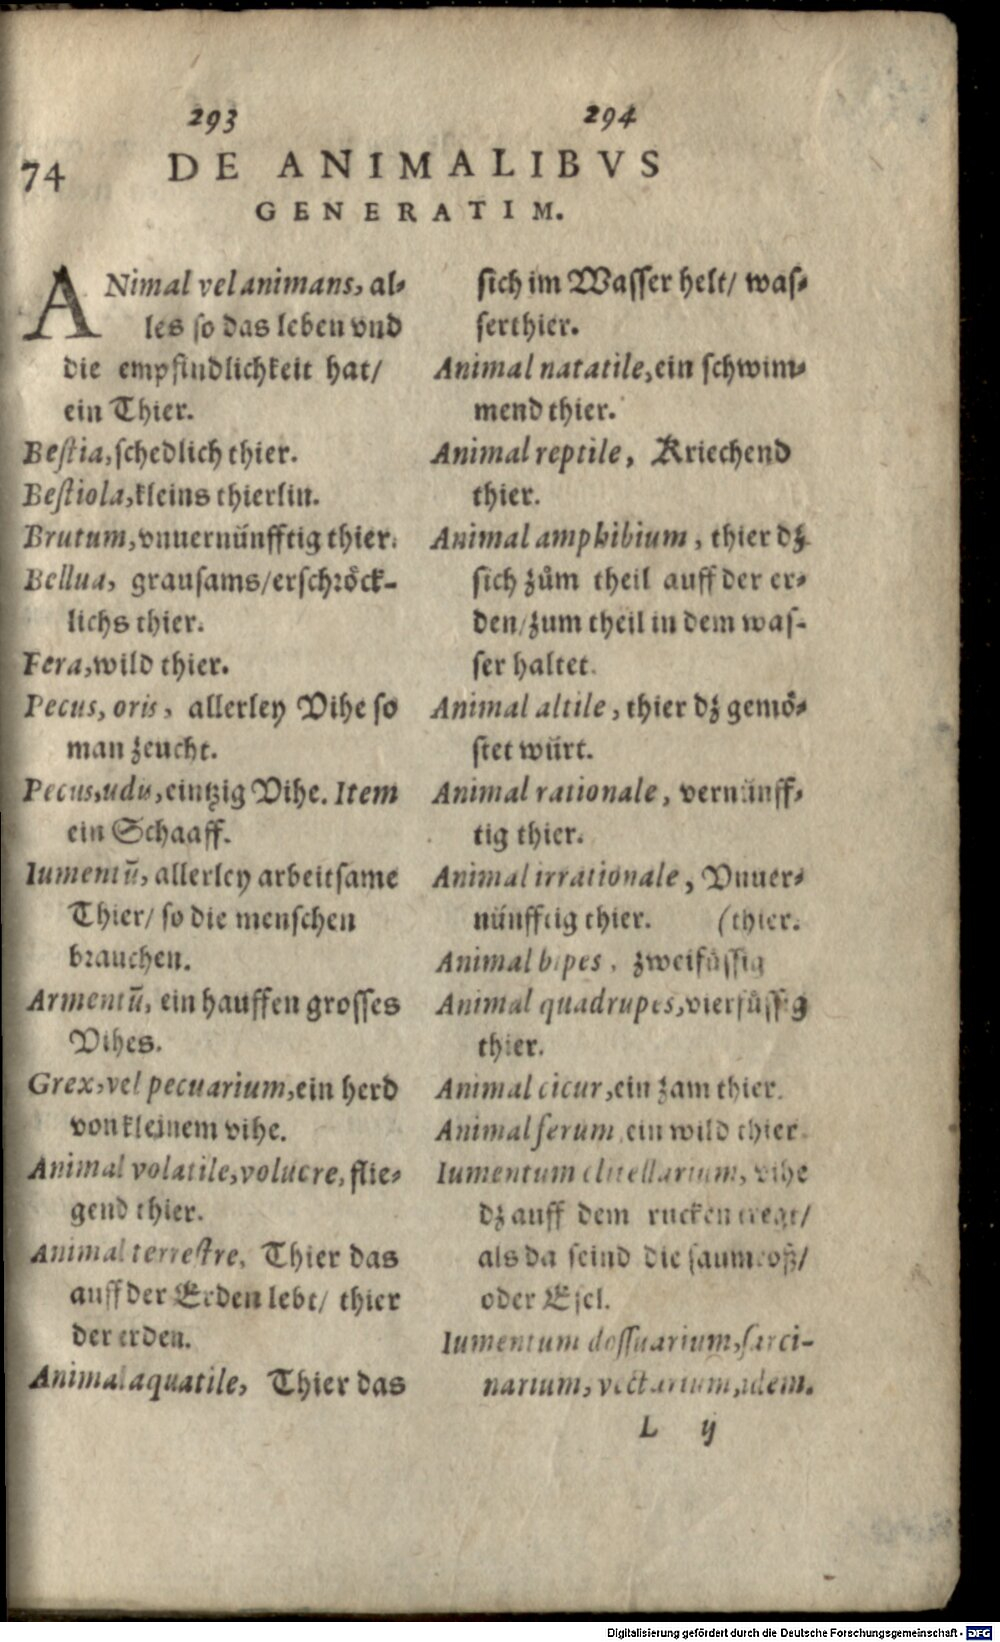 293 294
74 DE ANIMALIBVS
GENERATIM.
ANimal vel animans, al-
les so das leben vnd
die empfindlichkeit hat/
ein Thier.
Bestia, schedlich thier.
Bestiola, kleins thierlin.
Brutum, vnuernünfftig thier.
Bellua, grausams/ erschröck-
lichs thier.
Fera, wild thier.
Pecus, oris, allerley Vihe so
man zeucht.
Pecus, udis, eintzig Vihe. Item
ein Schaaff.
Iumentũ, allerley arbeitsame
Thier/ so die menschen
brauchen.
Armentũ, ein hauffen grosses
Vihes.
Grex, vel pecuarium, ein herd
von kleinem vihe.
Animal volatile, volucre, flie-
gend thier.
Animal terrestre, Thier das
auff der Erden lebt/ thier
der erden.
Animal aquatile, Thier das
sich im Wasser helt/ was-
serthier.
Animal natatile, ein schwim-
mend thier.
Animal reptile, Kriechend
thier.
Animal amphibium, thier dz
sich zům theil auff der er-
den/ zum theil in dem was-
ser haltet.
Animal altile, thier dz gemö-
stet würt.
Animal rationale, vernünff-
tig thier.
Animal irrationale, Vnuer-
nünfftig thier. (thier.
Animal bipes, zweifüssig
Animal quadrupes, vierfüssig
thier.
Animal cicur, ein zam thier.
Animal ferum, ein wild thier.
Iumentum clitellarium, vihe
dz auff dem rucken tregt/
als da seind die saumroß/
oder Esel.
Iumentum dossuarium, sarci-
narium, vectarium, idem.
L ij
Digitalisierung gefördert durch die Deutsche Forschungsgemeinschaft - DFG